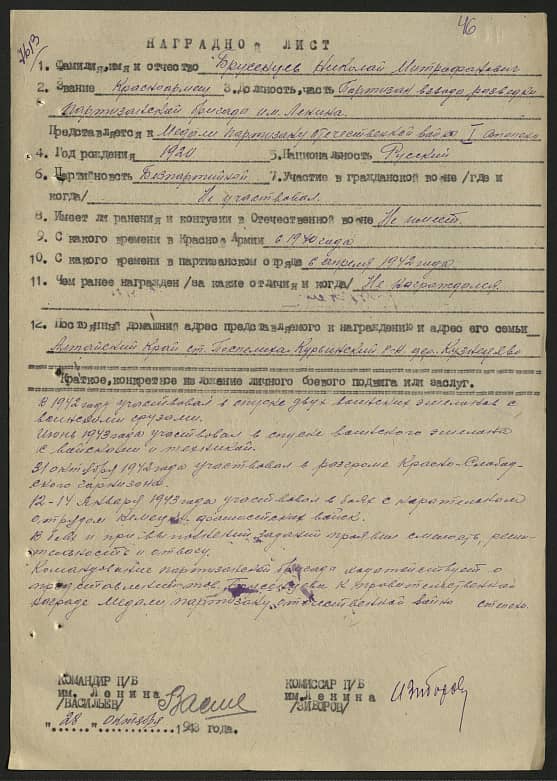 46
7613
НАГРАДНОЙ ЛИСТ
1. Фамилия, имя и отчество Брусенцев Николай Митрофанович
2. Звание Красноармеец 3. Должность, часть Партизан взвода разведки
партизанской бригада им. Ленина.
Представляется к Медали партизану Отечественной войны I степени
4. Год рождения 1920 5. Национальность Русский
6. Партийновсть Безпартийной 7. Участие в гражданской войне /где и
когда/ Не участвовал.
8. Имеет ли ранения и контузии в Отечественной войне Не имеет.
9. С какого времени в Красной Армии с 1940 года
10. С какого времени в партизанском отряде с апреля 1942 года
11. Чем ранее награжден /за какие отличия и когда/ Не награждался
12. Постоянный домашний адрес представляемого к награждению и адрес его семьи
Алтайский Край ст. Поспелиха Курьинский р-н дер. Кузнецово
Краткое, конкретное изложение личного боевого подвига или заслуг.
В 1942 году участвовал в спуске двух воинских эшелонов с
воинскими грузами.
Июнь 1943 года участвовал в спуске воинского эшелона
с войсками и техникой.
31 октября 1942 года участвовал в розгроме Красно-Слабад-
ского гарнизона.
12-14 Января 1943 года участвовал в боях с карательном
отрядом фашистских войск.
В боях и при выполнений заданий проявил смелость, реши-
тельность и отвагу.
Командование партизанской бригада ходотействует о
предстовлении тов. к провительственной
награде Медали, партизану отечественной войны степени.
КОМАНДИР П/Б
им. Ленина
/ВАСИЛЬЕВ/
КОМИССАР П/Б
им. Ленина
/ЗИБОРОВ/
"28" октября 1943 года.